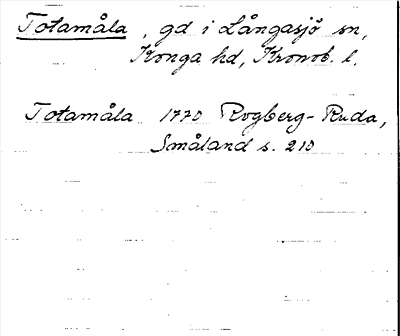 Totamåla, gd i Långasjö sn,
Konga hd, Kronob. l.
Totamåla 1770 Rogberg-Ruda,
Småland s. 210